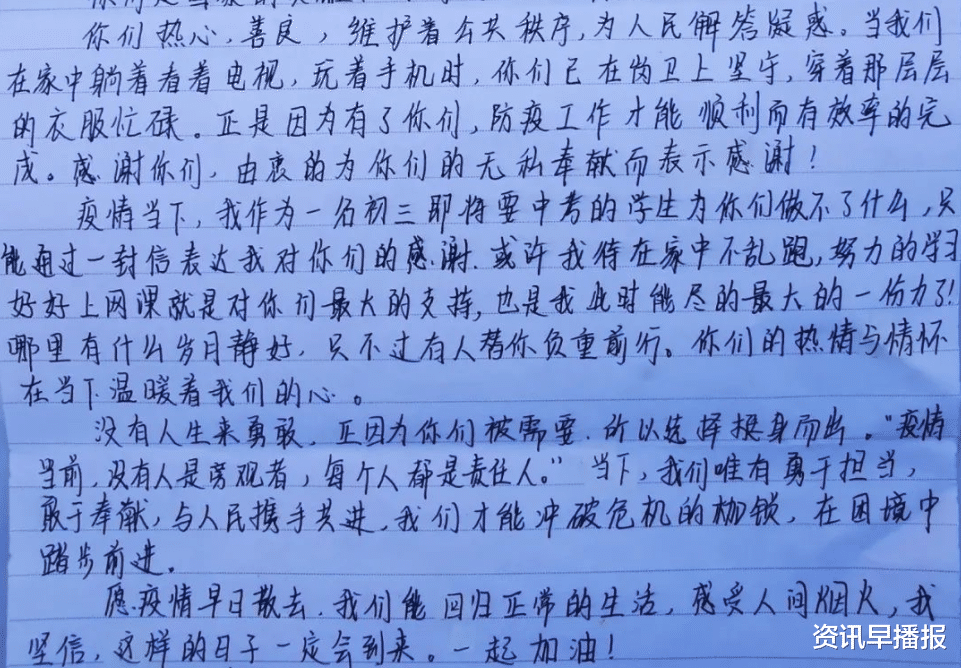 你们热心、善良，维护着公共秩序，为人民解答疑惑。当我们
在家中躺着看着电视，玩着手机时，你们已在岗卫上坚守，穿着那层层
的衣服忙碌。正是因为有了你们，防疫工作才能顺利而有效率的完
成。感谢你们，由衷的为你们的无私奉献而表示感谢！
疫情当下，我作为一名初三即将要中考的学生为你们做不了什么，只
能通过一封信表达我对你们的感谢．或许我待在家中不乱跑，努力的学习
好好上网课就是对你们最大的支持，也是我此时能尽的最大的一份力了！
哪里有什么岁月静好，只不过有人替你负重前行。你们的热情与情怀
在当下温暖着我们的心。
没有人生来勇敢，正因为你们被需要．所以选择挺身而出。“疫情
当前，没有人是旁观者，每个人都是责任人。”当下，我们唯有勇于担当，
敢于奉献，与人民携手共进，我们才能冲破危机的枷锁，在困境中
踏步前进。
愿疫情早日散去．我们能回归正常的生活，感受人间烟火，我
坚信，这样的日子一定会到来。一起加油！
资讯早播报